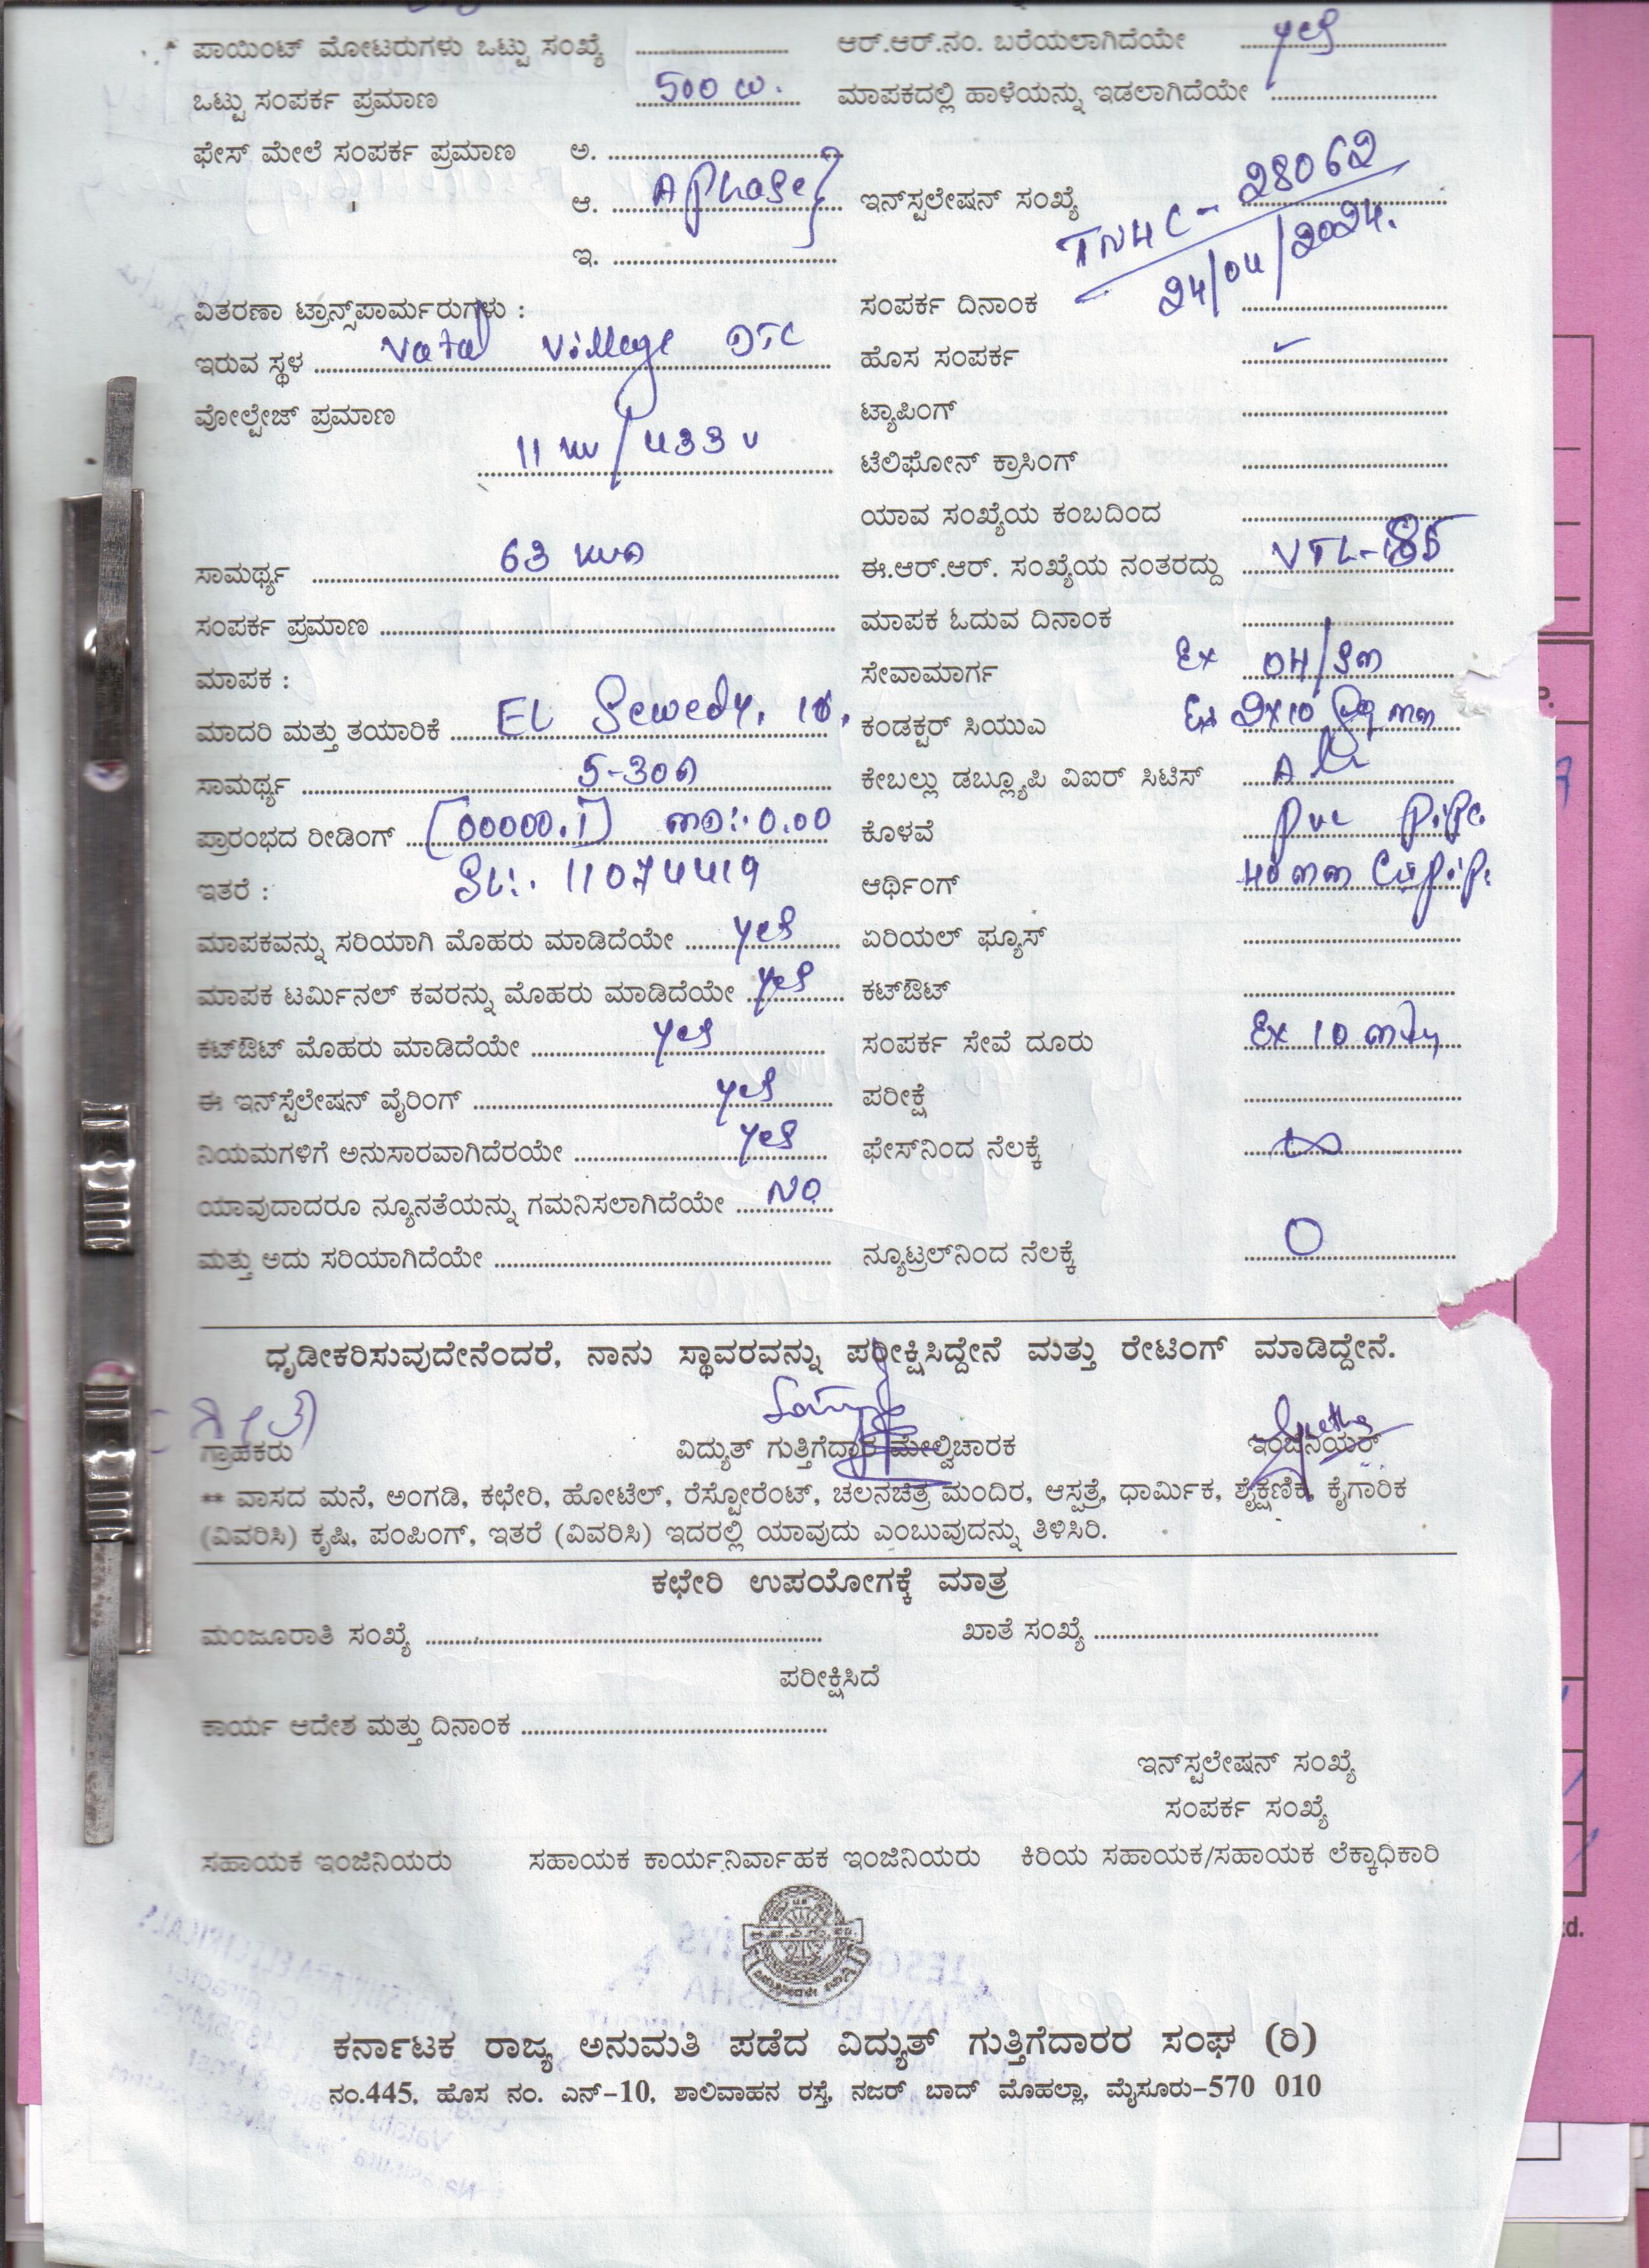 ಪಾಯಿಂಟ್ ಮೋಟರುಗಳು ಒಟ್ಟು ಸಂಖ್ಯೆ ಆರ್.ಆರ್.ನಂ. ಬರೆಯಲಾಗಿದೆಯೇ yes
ಒಟ್ಟು ಸಂಪರ್ಕ ಪ್ರಮಾಣ 500 w. ಮಾಪಕದಲ್ಲಿ ಹಾಳೆಯನ್ನು ಇಡಲಾಗಿದೆಯೇ
ಫೇಸ್ ಮೇಲೆ ಸಂಪರ್ಕ ಪ್ರಮಾಣ ಅ.
ಆ. A phase } ಇನ್‌ಸ್ಟಲೇಷನ್ ಸಂಖ್ಯೆ TNHC - 28062
ಇ.
24/04/2024.
ವಿತರಣಾ ಟ್ರಾನ್ಸ್‌ಪಾರ್ಮರುಗಳು : ಸಂಪರ್ಕ ದಿನಾಂಕ
ಇರುವ ಸ್ಥಳ Vatal Village DTC ಹೊಸ ಸಂಪರ್ಕ ✓
ವೋಲ್ಟೇಜ್ ಪ್ರಮಾಣ ಟ್ಯಾಪಿಂಗ್
11 kv / 433 v ಟೆಲಿಫೋನ್ ಕ್ರಾಸಿಂಗ್
ಯಾವ ಸಂಖ್ಯೆಯ ಕಂಬದಿಂದ
ಸಾಮರ್ಥ್ಯ 63 kva ಈ.ಆರ್.ಆರ್. ಸಂಖ್ಯೆಯ ನಂತರದ್ದು VTL-
ಸಂಪರ್ಕ ಪ್ರಮಾಣ ಮಾಪಕ ಓದುವ ದಿನಾಂಕ
ಮಾಪಕ : ಸೇವಾಮಾರ್ಗ Ex OH/sm
ಮಾದರಿ ಮತ್ತು ತಯಾರಿಕೆ EL Sewedy. ಕಂಡಕ್ಟರ್ ಸಿಯುಎ Ex 2x10 Sq mm
ಸಾಮರ್ಥ್ಯ 5-30A ಕೇಬಲ್ಲು ಡಬ್ಲ್ಯೂಪಿ ವಿಐರ್ ಸಿಟಿಸ್ Al
ಪ್ರಾರಂಭದ ರೀಡಿಂಗ್ [00000.1] MD:. 0.00 ಕೊಳವೆ pvc pipe
ಇತರೆ : SL:. 11074419 ಆರ್ಥಿಂಗ್ 40 mm
ಮಾಪಕವನ್ನು ಸರಿಯಾಗಿ ಮೊಹರು ಮಾಡಿದೆಯೇ yes ಏರಿಯಲ್ ಫ್ಯೂಸ್
ಮಾಪಕ ಟರ್ಮಿನಲ್ ಕವರನ್ನು ಮೊಹರು ಮಾಡಿದೆಯೇ yes ಕಟ್‌ಔಟ್
ಕಟ್‌ಔಟ್ ಮೊಹರು ಮಾಡಿದೆಯೇ yes ಸಂಪರ್ಕ ಸೇವೆ ದೂರು Ex 10 mtr
ಈ ಇನ್‌ಸ್ಟೆಲೇಷನ್ ವೈರಿಂಗ್ yes ಪರೀಕ್ಷೆ
ನಿಯಮಗಳಿಗೆ ಅನುಸಾರವಾಗಿದೆರಯೇ yes ಫೇಸ್‌ನಿಂದ ನೆಲಕ್ಕೆ ∞
ಯಾವುದಾದರೂ ನ್ಯೂನತೆಯನ್ನು ಗಮನಿಸಲಾಗಿದೆಯೇ NO
ಮತ್ತು ಅದು ಸರಿಯಾಗಿದೆಯೇ ನ್ಯೂಟ್ರಲ್‌ನಿಂದ ನೆಲಕ್ಕೆ 0
ಧೃಡೀಕರಿಸುವುದೇನೆಂದರೆ, ನಾನು ಸ್ಥಾವರವನ್ನು ಪರೀಕ್ಷಿಸಿದ್ದೇನೆ ಮತ್ತು ರೇಟಿಂಗ್ ಮಾಡಿದ್ದೇನೆ.
ಗ್ರಾಹಕರು ವಿದ್ಯುತ್ ಗುತ್ತಿಗೆದಾರ ಮೇಲ್ವಿಚಾರಕ ಇಂಜಿನಿಯರ್
** ವಾಸದ ಮನೆ, ಅಂಗಡಿ, ಕಛೇರಿ, ಹೋಟೆಲ್, ರೆಸ್ಟೋರೆಂಟ್, ಚಲನಚಿತ್ರ ಮಂದಿರ, ಆಸ್ಪತ್ರೆ, ಧಾರ್ಮಿಕ, ಶೈಕ್ಷಣಿಕ, ಕೈಗಾರಿಕ
(ವಿವರಿಸಿ) ಕೃಷಿ, ಪಂಪಿಂಗ್, ಇತರೆ (ವಿವರಿಸಿ) ಇದರಲ್ಲಿ ಯಾವುದು ಎಂಬುವುದನ್ನು ತಿಳಿಸಿರಿ.
ಕಛೇರಿ ಉಪಯೋಗಕ್ಕೆ ಮಾತ್ರ
ಮಂಜೂರಾತಿ ಸಂಖ್ಯೆ ಖಾತೆ ಸಂಖ್ಯೆ
ಪರೀಕ್ಷಿಸಿದೆ
ಕಾರ್ಯ ಆದೇಶ ಮತ್ತು ದಿನಾಂಕ
ಇನ್‌ಸ್ಟಲೇಷನ್ ಸಂಖ್ಯೆ
ಸಂಪರ್ಕ ಸಂಖ್ಯೆ
ಸಹಾಯಕ ಇಂಜಿನಿಯರು ಸಹಾಯಕ ಕಾರ್ಯನಿರ್ವಾಹಕ ಇಂಜಿನಿಯರು ಕಿರಿಯ ಸಹಾಯಕ/ಸಹಾಯಕ ಲೆಕ್ಕಾಧಿಕಾರಿ
ಕರ್ನಾಟಕ ರಾಜ್ಯ ಅನುಮತಿ ಪಡೆದ ವಿದ್ಯುತ್ ಗುತ್ತಿಗೆದಾರರ ಸಂಘ (ರಿ)
ನಂ.445, ಹೊಸ ನಂ. ಎನ್-10, ಶಾಲಿವಾಹನ ರಸ್ತೆ, ನಜರ್ ಬಾದ್ ಮೊಹಲ್ಲಾ, ಮೈಸೂರು-570 010